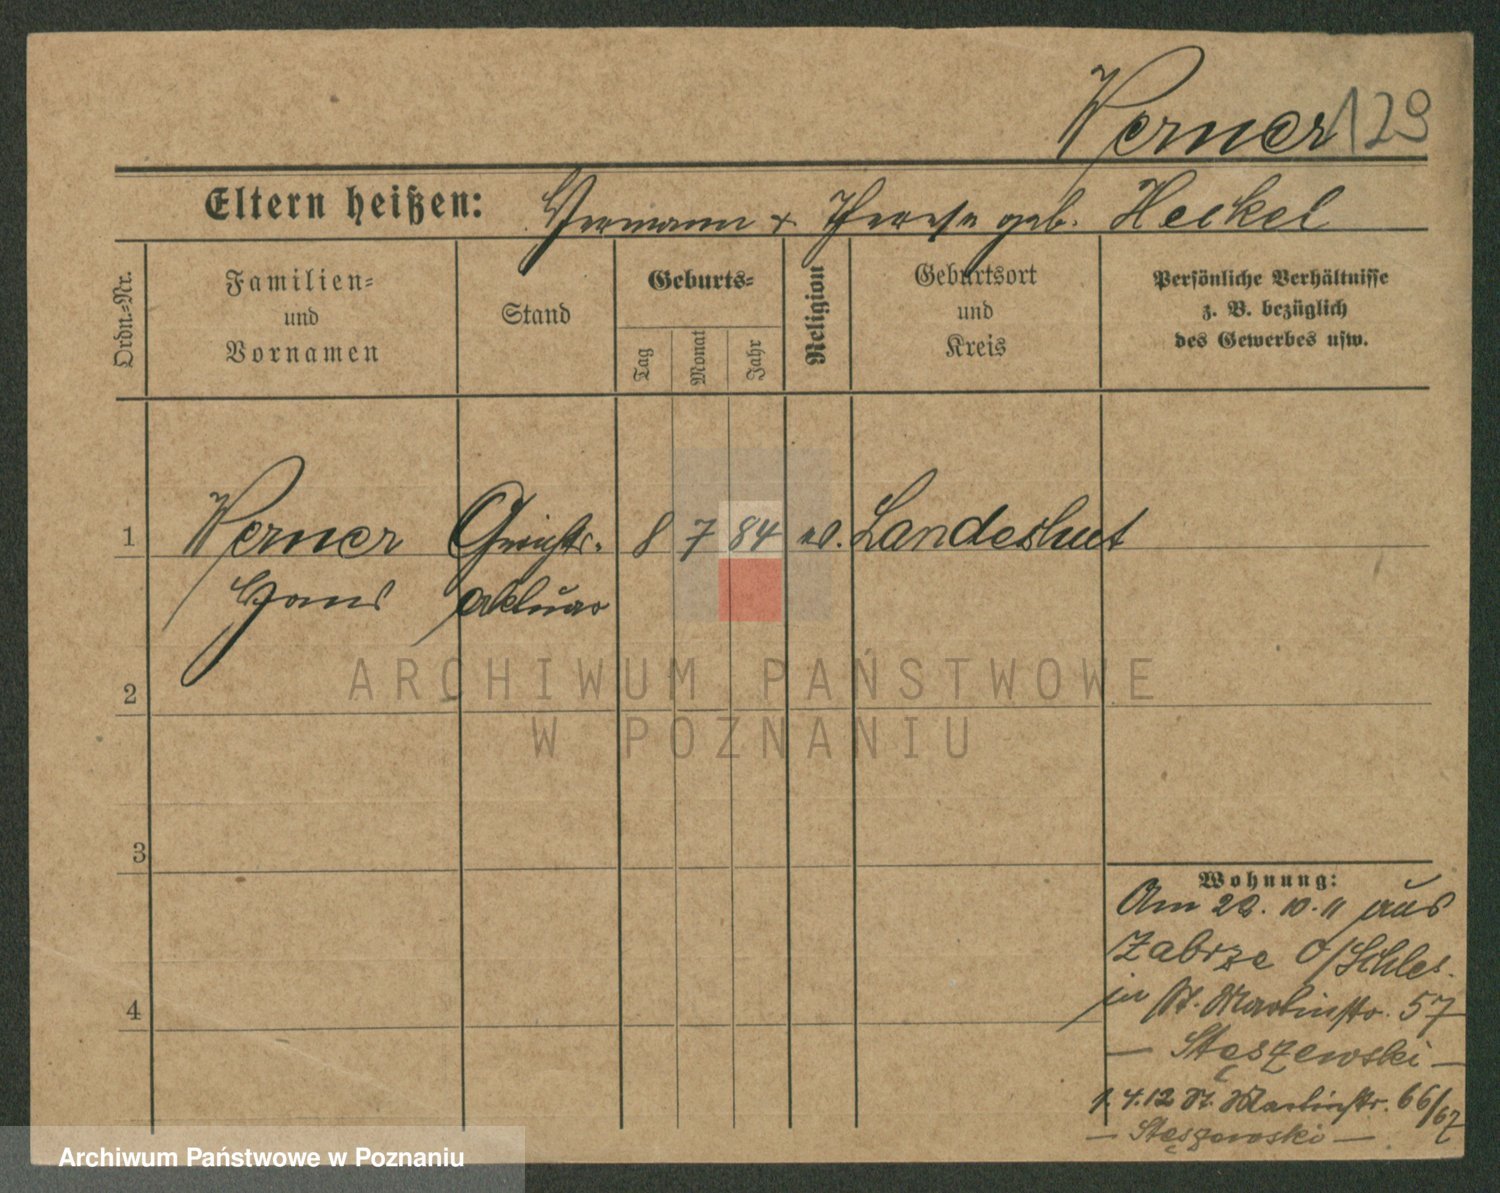 Werner 129
Eltern heißen: Hermann & Therese geb. Heckel
Ordn.-Nr.
Familien-
und
Vornamen
Stand
Geburts-
Tag
Monat
Jahr
Religion
Geburtsort
und
Kreis
Persönliche Verhältnisse
z. B. bezüglich
des Gewerbes usw.
1 Werner Gerichts- 8 7 84 ev. Landeshut
Hans aktuar
2
3
4
Wohnung:
Am 22. 10. 11 aus
Zabrze O/Schles.
in St. Martinstr. 57
— Stęszewski —
1. 4. 12 St. Martinstr. 66/67
— Stęszewski —
ARCHIWUM PAŃSTWOWE
W POZNANIU
Archiwum Państwowe w Poznaniu